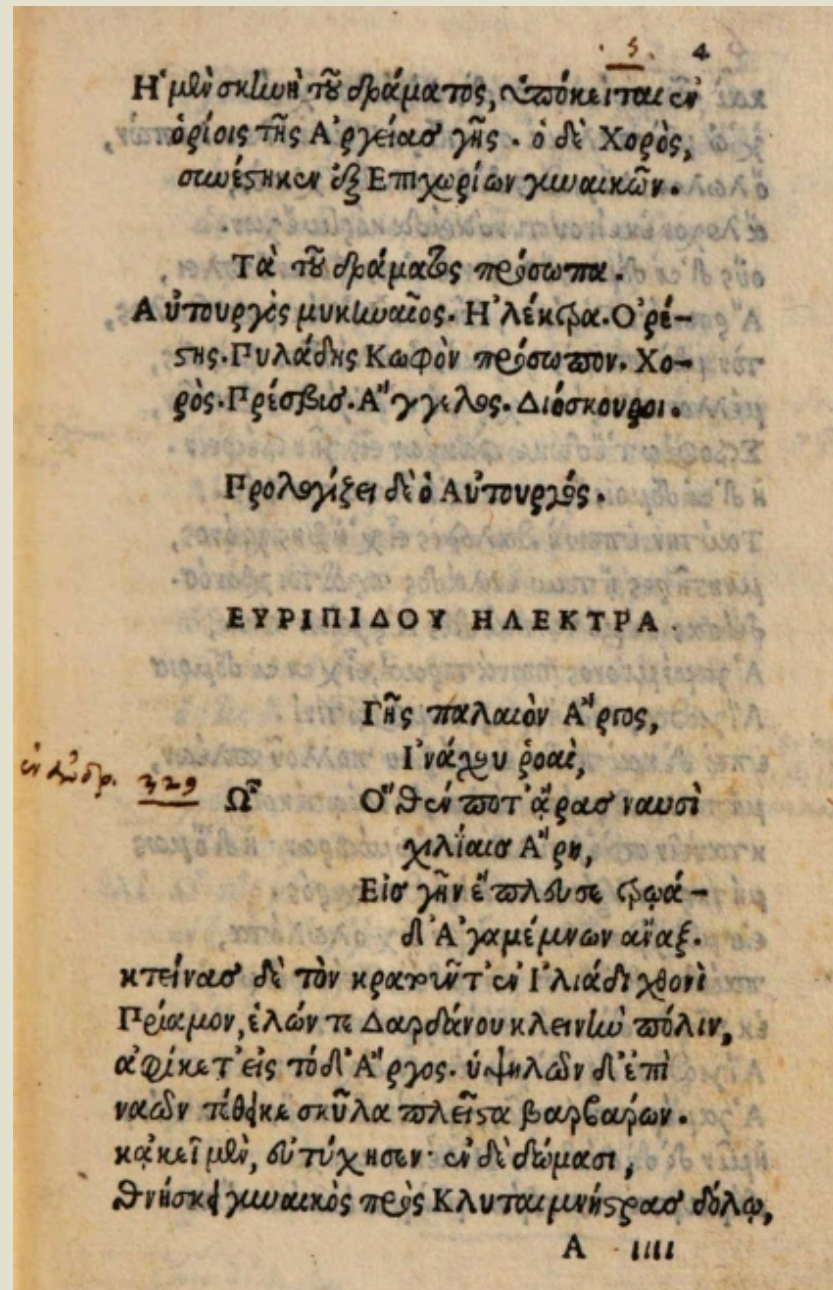 5. 4
Ἡ μὲν σκηνὴ τοῦ δράματος, ὑπόκειται ἐν
ὁρίοις τῆς Ἀργείας γῆς. ὁ δὲ Χορὸς,
συνέστηκεν ἐξ Ἐπιχωρίων γυναικῶν.
Τὰ τοῦ δράματος πρόσωπα.
Αὐτουργὸς μυκηναῖος. Ἠλέκτρα. Ὀρέ-
στης. Πυλάδης Κωφὸν πρόσωπον. Χο-
ρὸς. Πρέσβις. Ἄγγελος. Διόσκουροι.
Προλογίζει δὲ ὁ Αὐτουργός.
ΕΥΡΙΠΙΔΟΥ ΗΛΕΚΤΡΑ.
Γῆς παλαιὸν Ἄργος,
Ἰνάχου ῥοαὶ,
329 Ὦ Ὅθεν ποτ' ἄρας ναυσὶ
χιλίαις Ἄρη,
Εἰς γῆν ἔπλευσε τρῳά-
δ' Ἀγαμέμνων ἄναξ.
κτείνας δὲ τὸν κρατοῦντ' ἐν Ἰλιάδι χθονὶ
Πρίαμον, ἑλών τε Δαρδάνου κλεινὴν πόλιν,
ἀφίκετ' εἰς τόδ' Ἄργος. ὑψηλῶν δ' ἐπὶ
ναῶν τέθεικε σκῦλα πλεῖστα βαρβάρων.
κἀκεῖ μὲν, εὐτύχησεν· ἐν δὲ δώμασι,
θνήσκει γυναικὸς πρὸς Κλυταιμνήστρας δόλῳ,
A iiii